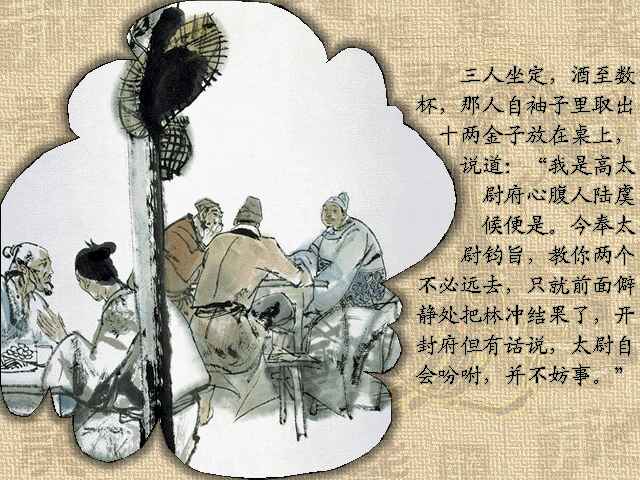 三人坐定，酒至数
杯，那人自袖子里取出
十两金子放在桌上，
说道：“我是高太
尉府心腹人陆虞
候便是。今奉太
尉钧旨，教你两个
不必远去，只就前面僻
静处把林冲结果了，开
封府但有话说，太尉自
会吩咐，并不妨事。”